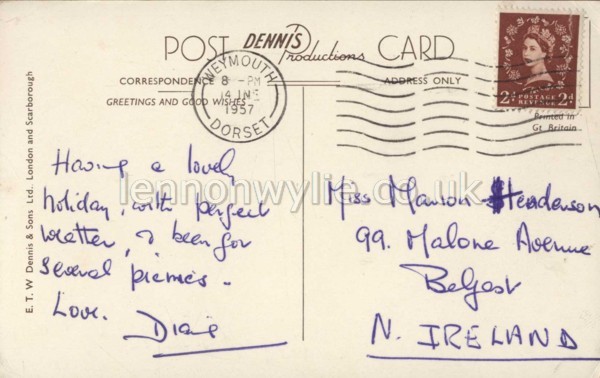 POST DENNIS Productions CARD
CORRESPONDENCE
ADDRESS ONLY
GREETINGS AND GOOD WISHES
WEYMOUTH
8 - PM
14 JNE
1957
DORSET
2D POSTAGE REVENUE 2D
Printed in
Gt. Britain
E. T. W Dennis & Sons Ltd., London and Scarborough
Having a lovely
holiday, with perfect
weather, & been for
several picnics.
Love.
Diane
Miss Marion Henderson
99. Malone Avenue
Belfast
N. IRELAND
lennonwylie.co.uk